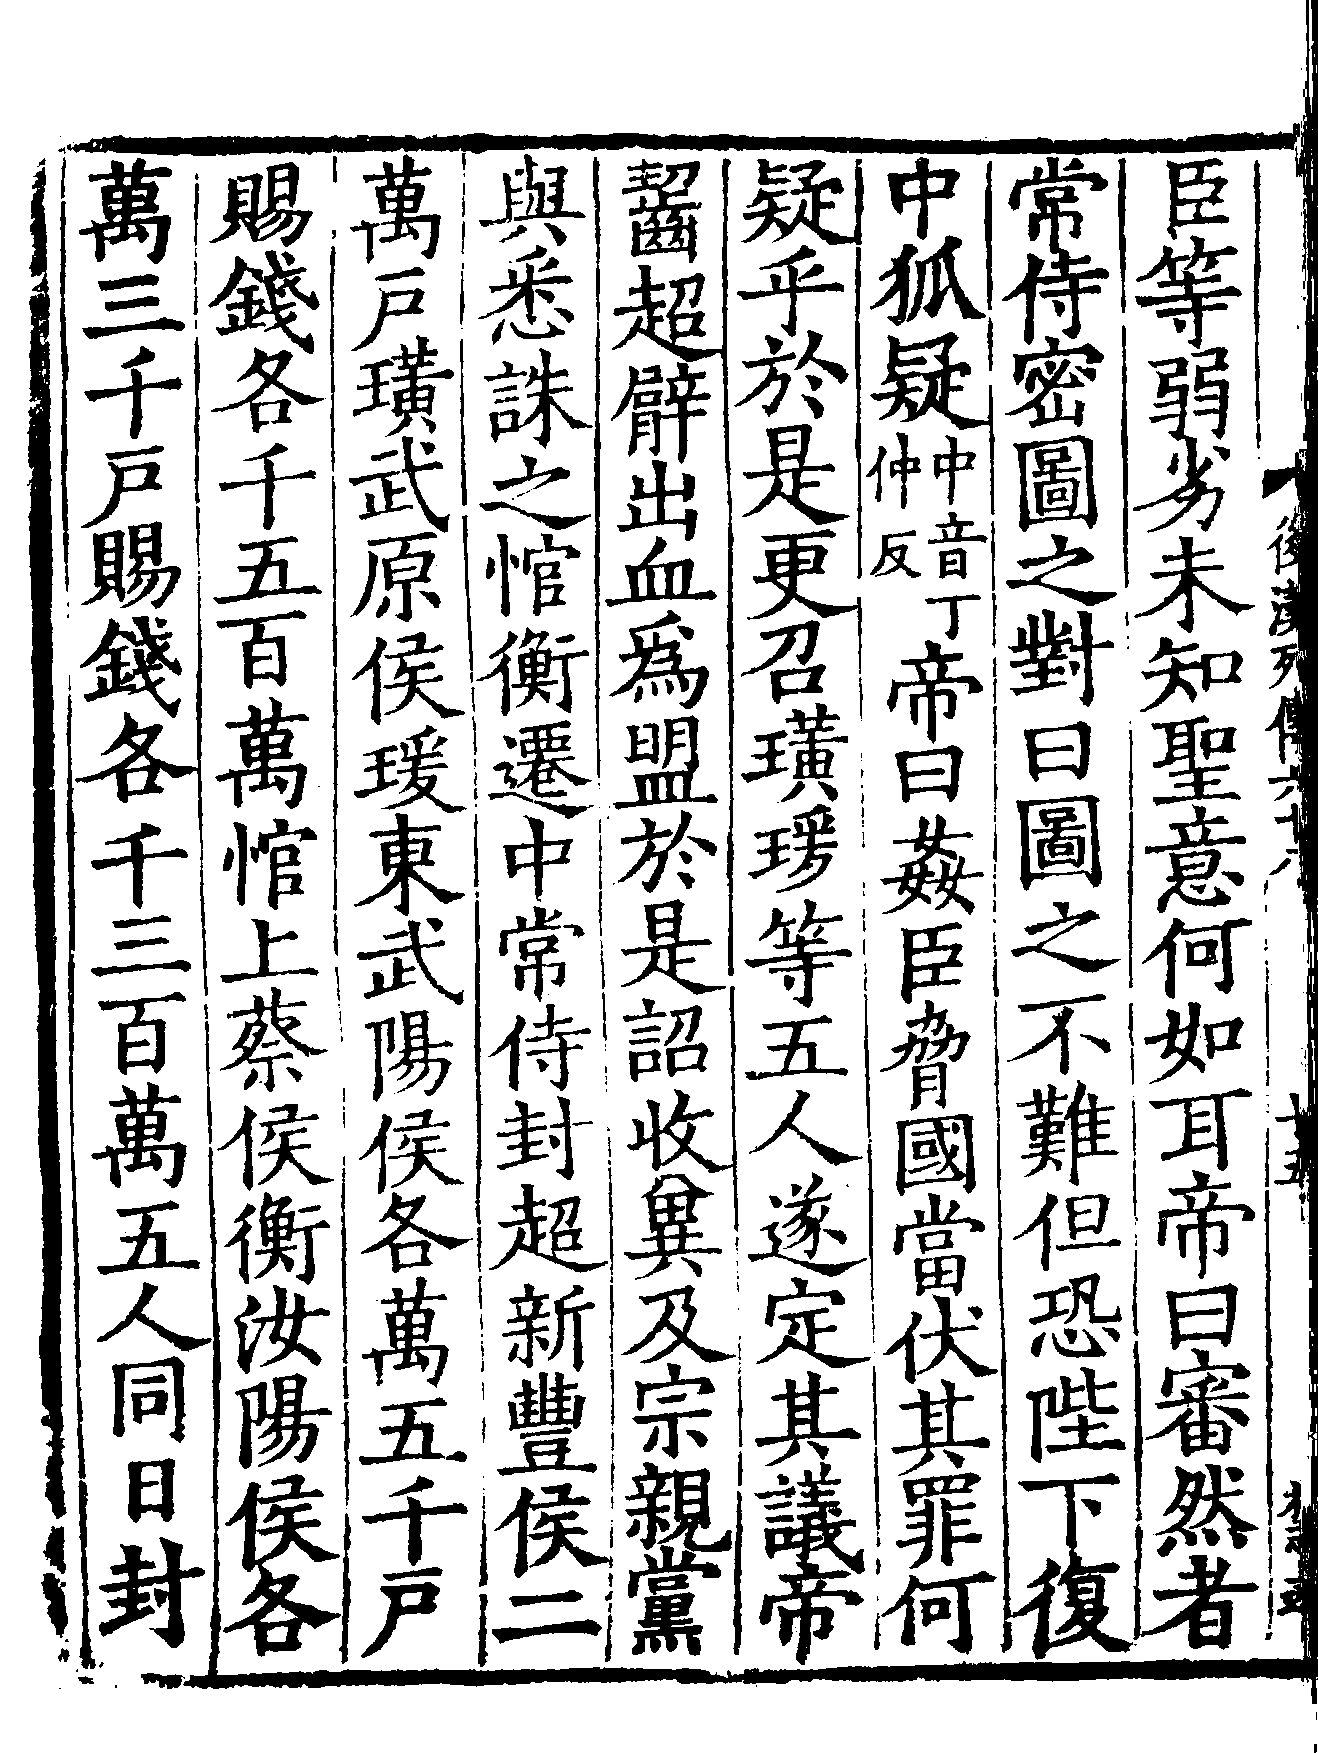 臣等弱劣未知聖意何如耳帝曰審然者
常侍密圖之對曰圖之不難但恐陛下復
中狐疑中音丁仲反帝曰姦臣脅國當伏其罪何
疑乎於是更召璜瑗等五人遂定其議帝
齧超臂出血爲盟於是詔收兾及宗親黨
與悉誅之悺衡遷中常侍封超新豐侯二
萬戶璜武原侯瑗東武陽侯各萬五千戶
賜錢各千五百萬悺上蔡侯衡汝陽侯各
萬三千戶賜錢各千三百萬五人同日封
後漢列傳六十八
十五